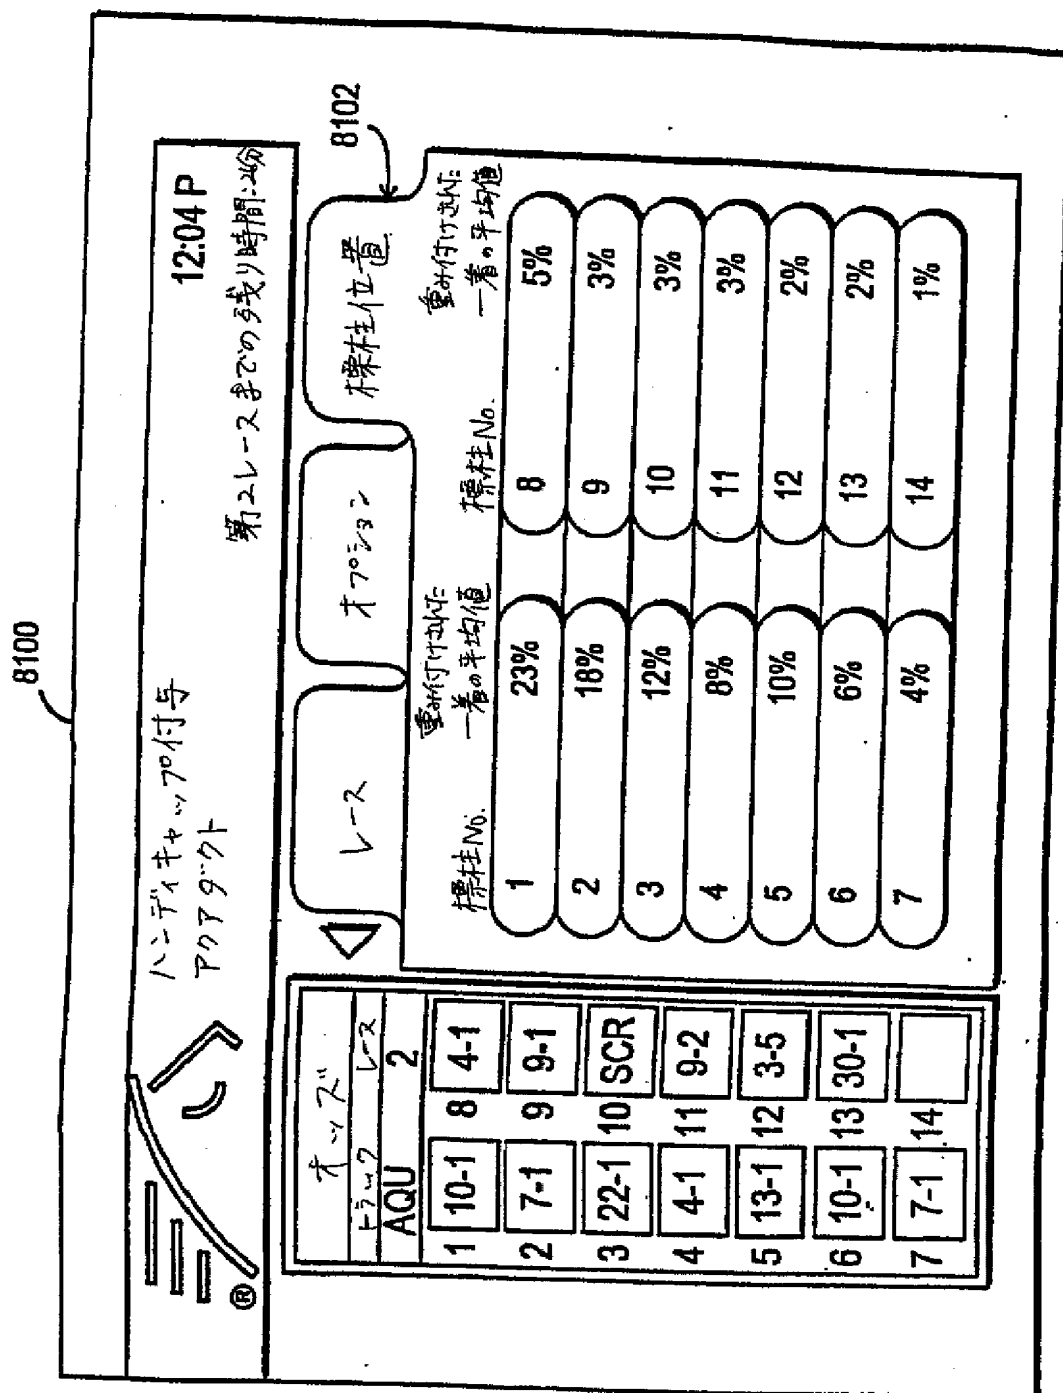 8100
ハンディキャップ付与
アクアダクト
12:04 P
第2レースまでの残り時間:2分
®
オッズ
トラック レース
AQU 2
1 10-1 8 4-1
2 7-1 9 9-1
3 22-1 10 SCR
4 4-1 11 9-2
5 13-1 12 3-5
6 10-1 13 30-1
7 7-1 14
レース
オプション
標柱位置
8102
標柱No. 重み付けされた 標柱No. 重み付けされた
一着の平均値 一着の平均値
1 23% 8 5%
2 18% 9 3%
3 12% 10 3%
4 8% 11 3%
5 10% 12 2%
6 6% 13 2%
7 4% 14 1%